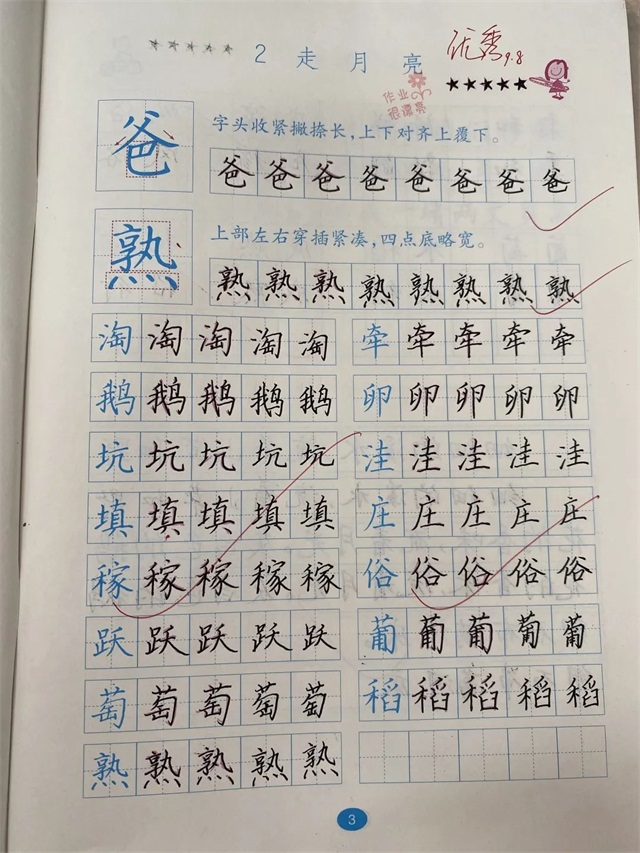 2 走月亮
优秀 9.8
作业很漂亮
爸 字头收紧撇捺长，上下对齐上覆下。
爸爸爸爸爸爸爸爸
熟 上部左右穿插紧凑，四点底略宽。
熟熟熟熟熟熟熟熟
淘淘淘淘淘 牵牵牵牵牵
鹅鹅鹅鹅鹅 卵卵卵卵卵
坑坑坑坑坑 洼洼洼洼洼
填填填填填 庄庄庄庄庄
稼稼稼稼稼 俗俗俗俗俗
跃跃跃跃跃 葡葡葡葡葡
萄萄萄萄萄 稻稻稻稻稻
熟熟熟熟熟
3